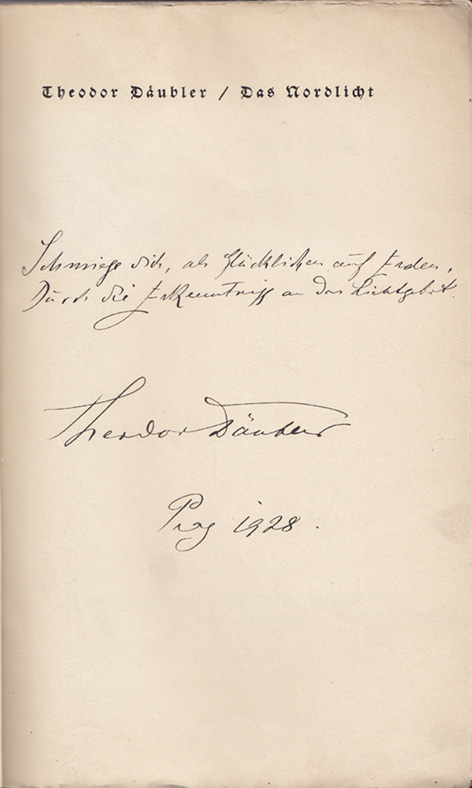 Theodor Däubler / Das Nordlicht
Schmiege dich, als Glücklicher auf Erden,
Durch die Erkenntniss an das Lichtgebot.
Theodor Däubler
Prag 1928.